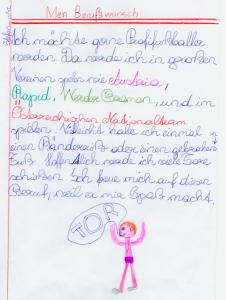 Mein Berufswunsch
Ich möchte gerne Profifußballer
werden. Da werde ich in großen
Vereinen spielen wie Austria,
Rapid, Werder Bremen, und im
Österreichischen Nationalteam
spielen. Vielleicht habe ich einmal
einen Bänderriß oder einen gebrochenen
Fuß. Hoffentlich werde ich viele Tore
schießen. Ich freue mich auf diesen
Beruf, weil er mir Spaß macht.
TOR